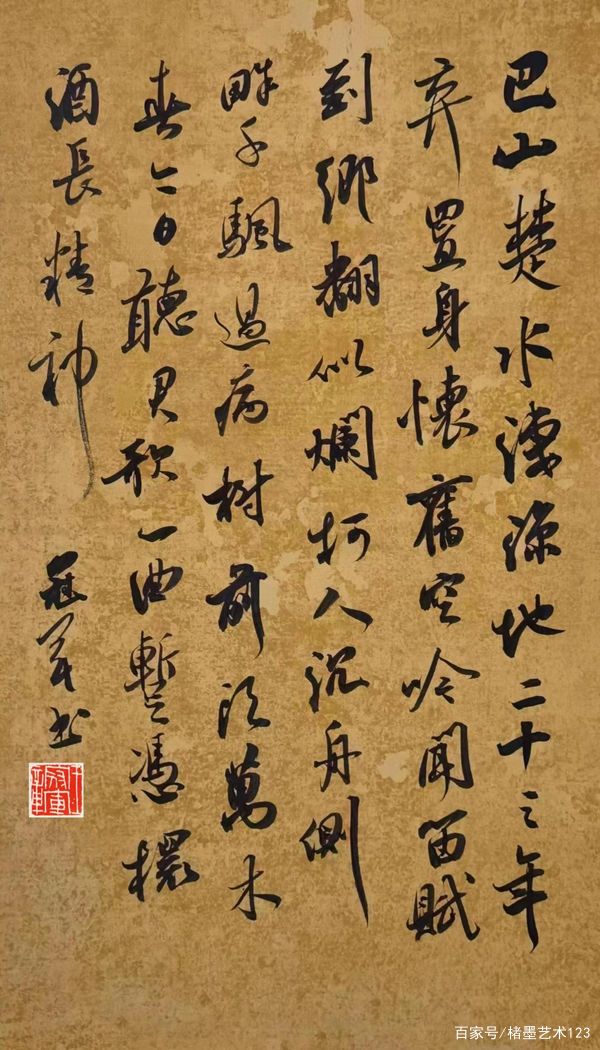 巴山楚水淒涼地二十三年
弃置身懷舊空吟聞笛賦
到鄉翻似爛柯人沉舟側
畔千颿過病樹前頭萬木
春今日聽君歌一曲暫憑
酒長精神
冠军书
百家号/楮墨艺术123